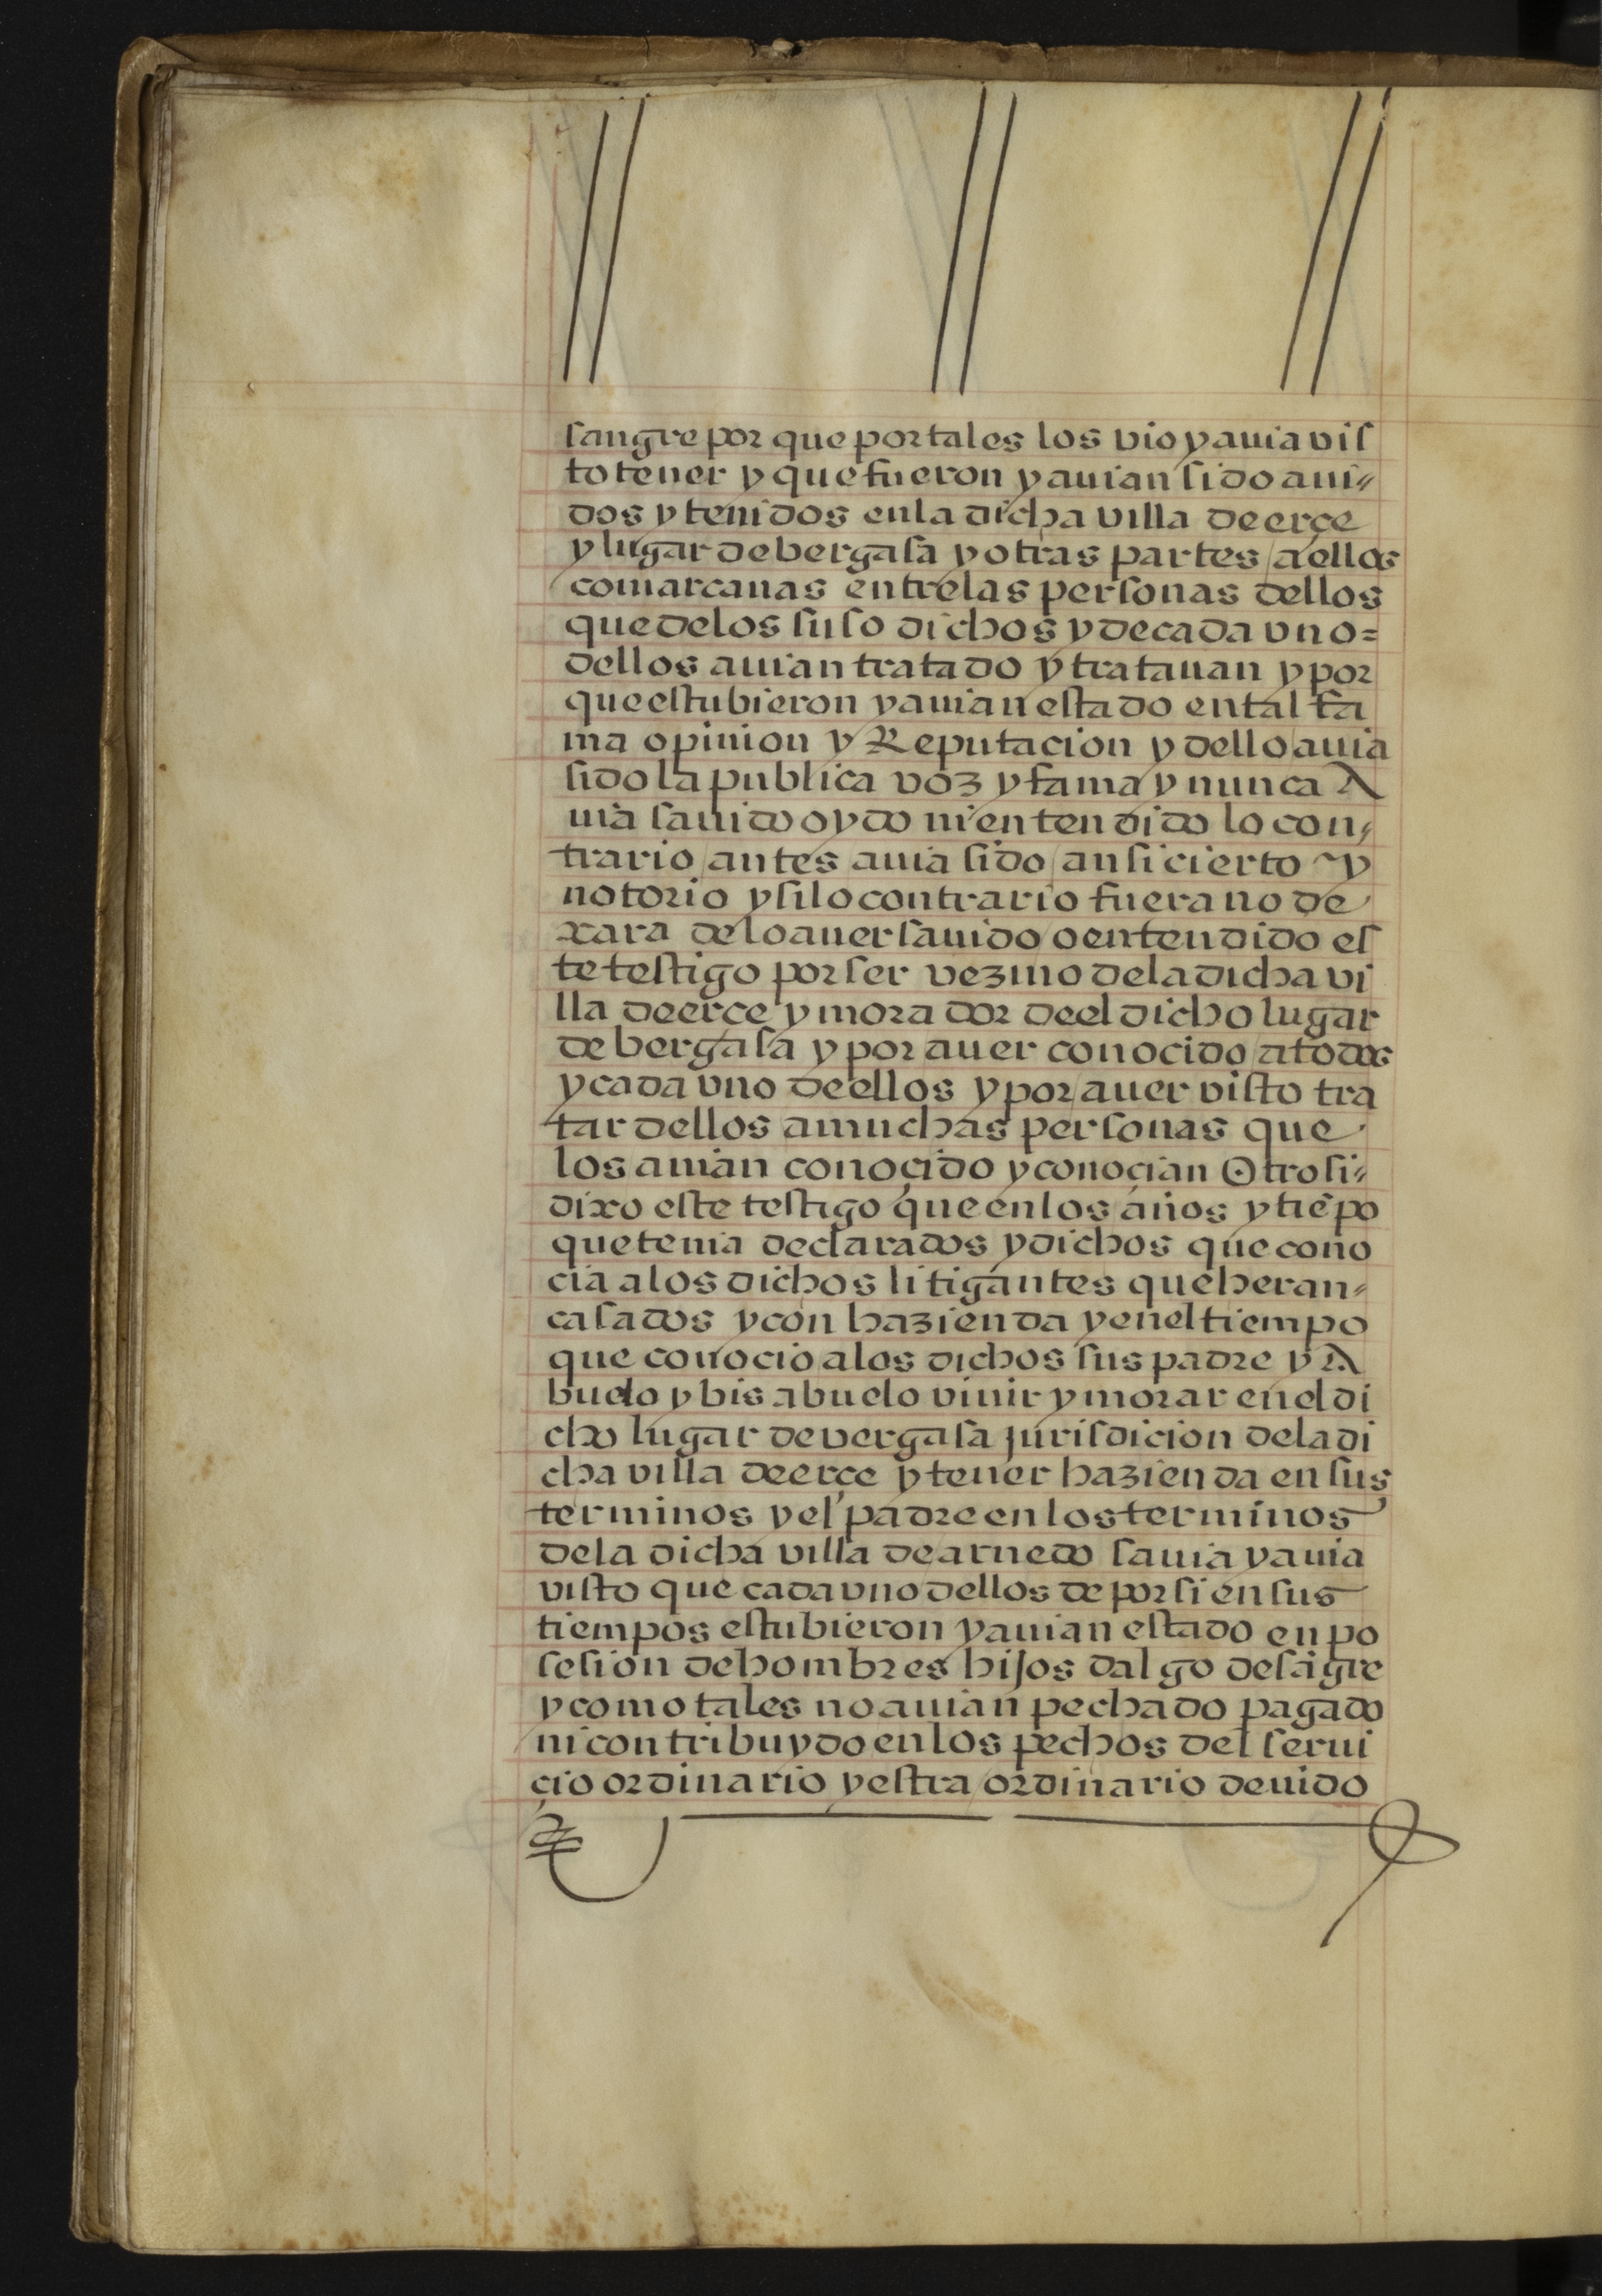 sangre por que por tales los vio y auia vis
to tener y que fueron y auian sido aui-
dos y tenidos en la dicha villa de erçe
y lugar de bergasa y otras partes a ellos
comarcanas entre las personas dellos
que de los suso dichos y de cada vno=
dellos auian tratado y tratauan y por
que estubieron y auian estado en tal fa
ma opinion y Reputacion y dello auia
sido la publica voz y fama y nunca A
uia sauido oydo ni entendido lo con-
trario antes auia sido ansi cierto y
notorio y si lo contrario fuera no de
xara de lo auer sauido o entendido es
te testigo por ser vezino de la dicha vi
lla de erce y morador de el dicho lugar
de bergasa y por auer conocido a todos
y cada vno de ellos y por auer visto tra
tar dellos a muchas personas que
los auian conoçido y conoçian Otrosi-
dixo este testigo que en los años y tiẽpo
que tenia declarados y dichos que cono
cia a los dichos litigantes que heran-
casados y con hazienda y en el tiempo
que conocio a los dichos sus padre y A
buelo y bisabuelo viuir y morar en el di
cho lugar de vergasa jurisdicion de la di
cha villa de erçe y tener hazienda en sus
terminos y el padre en los terminos
de la dicha villa de arnedo sauia y auia
visto que cada vno dellos de por si en sus
tiempos estubieron y auian estado en po
sesion de hombres hijos dalgo de sãgre
y como tales no auian pechado pagado
ni contribuydo en los pechos del serui
çio ordinario y estra ordinario deuido